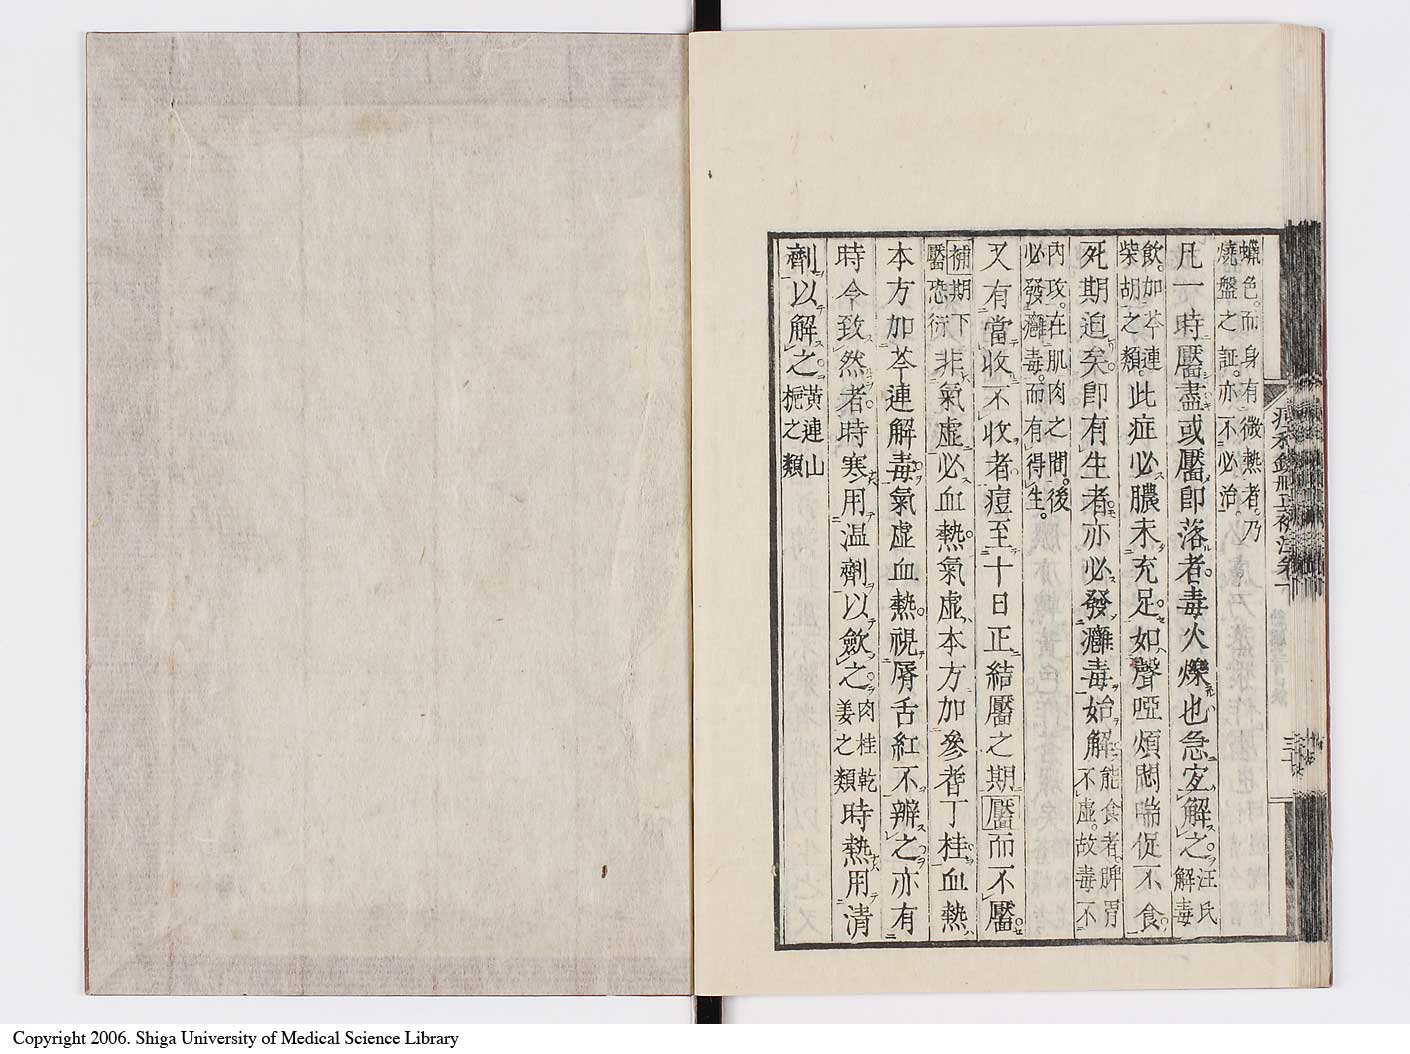 蠟色。而身有微熱者。乃
燒盤之証。亦不必治。
凡一時靨盡或靨卽落者毒火爍也急宐解之汪氏解毒
飮。加芩連
柴胡之類。此症必膿未充足如聲啞煩悶喘促不食
死期迫矣卽有生者亦必發癰毒始解能食者。脾胃不虛。故毒不
內攻。在肌肉之間。後
必發癰毒。而有得生。
又有當收不收者痘至十日正結靨之期靨而不靨
補期下
靨恐衍非氣虛必血熱氣虛本方加參耆丁桂血熱
本方加芩連解毒氣虛血熱視脣舌紅不辨之亦有
時令致然者時寒用温劑以斂之肉桂乾姜之類時熱用清
劑以解之黃連山梔之類
Copyright 2006. Shiga University of Medical Science Library